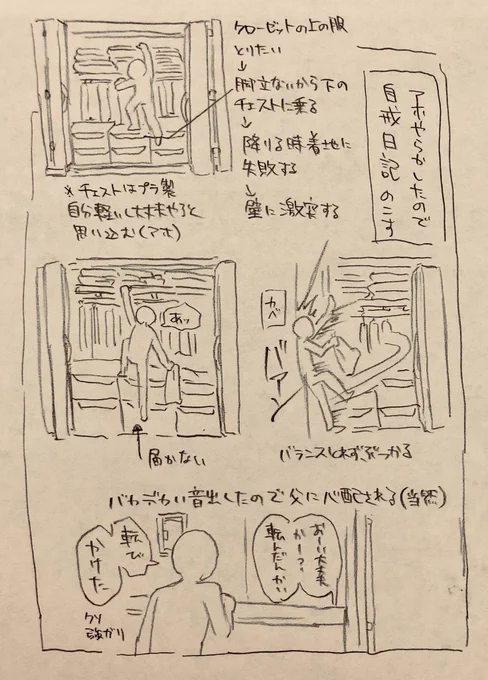 アホやらかしたので
自戒日記のこす
クローゼットの上の服
とりたい
↓
脚立ないから下の
チェストに乗る
↓
降りる時着地に
失敗する
↓
壁に激突する
※チェストはプラ製
自分軽いし大丈夫やろと
思い込む(アホ)
あッ
届かない
カベ
バァーン
バランスとれずぶつかる
バカデカい音出したので父に心配される(当然)
おーい大丈夫
かー?
転んだんかい
転び
かけた
クソ
強がり